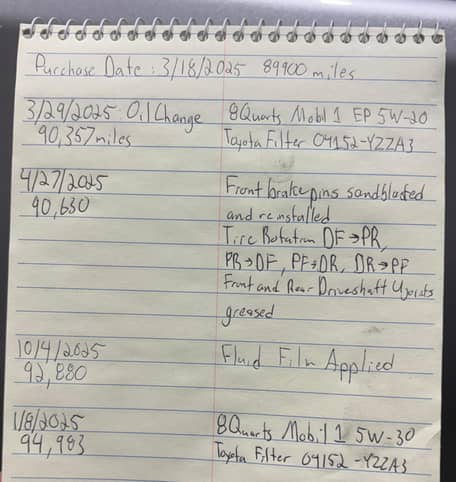 Purchase Date : 3/18/2025 89900 miles
3/29/2025 Oil Change 8 Quarts Mobil 1 EP 5W-20
90,357 miles Toyota Filter 04152-YZZA3
4/27/2025 Front brake pins sandblasted
90,630 and reinstalled
Tire Rotation DF→PR,
PR→DF, PF→DR, DR→PF
Front and Rear Driveshaft Ujoints
greased
10/4/2025 Fluid Film Applied
92,880
1/8/2025 8 Quarts Mobil 1 5W-30
94,983 Toyota Filter 04152-YZZA3